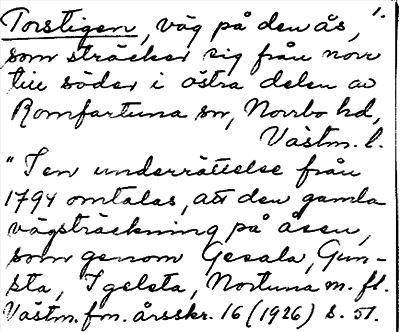 1.
Torstigen, väg på den ås,
som sträcker sig från norr
till söder i östra delen av
Romfartuna sn, Norrbo hd,
Västm. l.
"I en underrättelse från
1794 omtalas, att den gamla
vägsträckning på åsen,
som genom Gesala, Gun-
sta, Igelsta, Nortuna m. fl.
Västm. fm. årsskr. 16 (1926) s. 51.